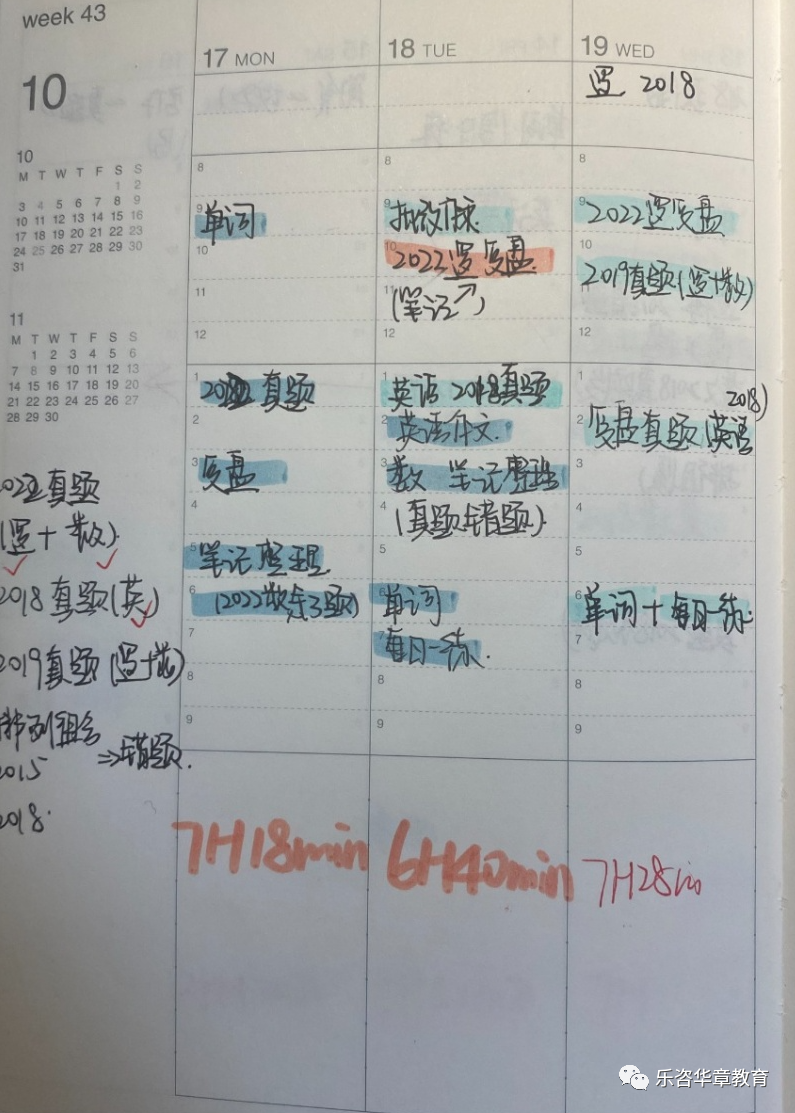 week 43
10
17 MON
18 TUE
19 WED
逻 2018
10
M T W T F S S
1 2
3 4 5 6 7 8 9
10 11 12 13 14 15 16
17 18 19 20 21 22 23
24 25 26 27 28 29 30
31
11
M T W T F S S
1 2 3 4 5 6
7 8 9 10 11 12 13
14 15 16 17 18 19 20
21 22 23 24 25 26 27
28 29 30
2022真题
(逻+数)
2018真题(英)
2019真题(逻+数)
排列组合
⇒错题.
2015
2018.
8
9 单词
10
11
12
1 真题
2
3 复盘
4
5 笔记整理.
6 (2022数错3题)
7
8
9
7H18min
8
9
10 2022逻 复盘.
11 (笔记↗)
12
1 英语 2018真题
2 英语作文.
3 数 笔记整理
4 (真题错题).
5
6 单词
7 每日一练.
8
9
6H40min
8
9 2022逻复盘
10
2019真题(逻+数)
11
12
1
2018)
2 复盘真题(英语
3
4
5
6 单词+每日一练.
7
8
9
7H28min
乐咨华章教育